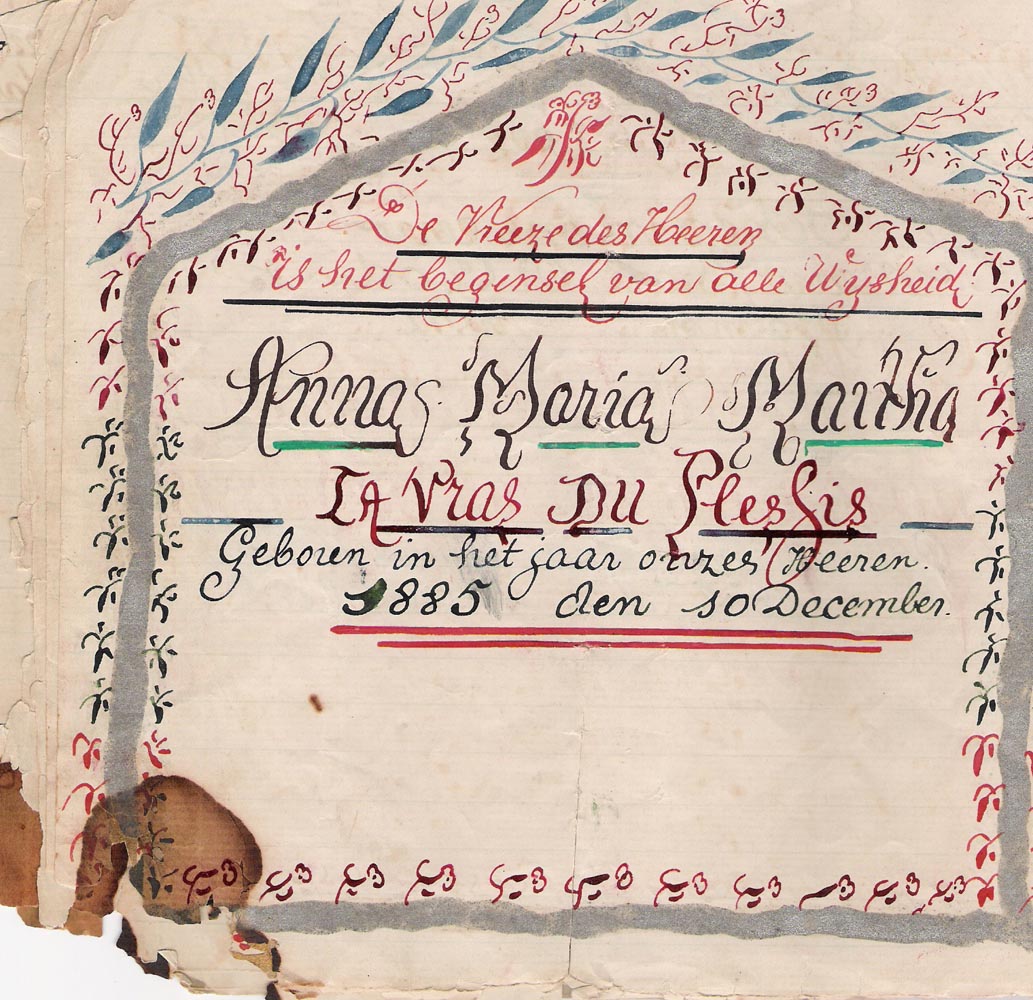 De Vreeze des Heeren
is het beginsel van alle Wysheid
Anna Maria Martha
LA Vras DU Plessis
Geboren in het jaar onzes Heeren.
1885 den 10 December.